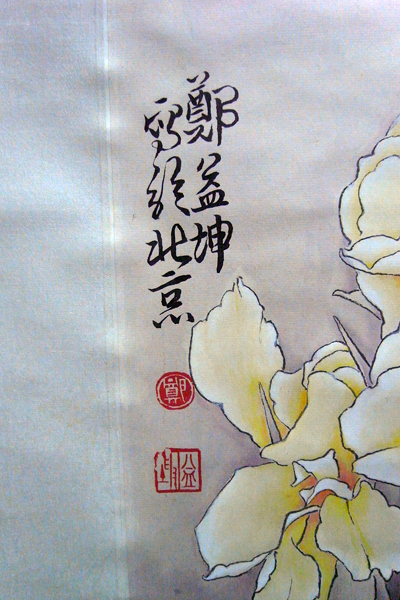 鄭益坤
寫於北京
鄭
益坤